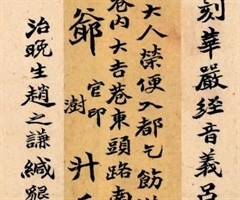 刻華嚴經音義呂
大人榮便入都乞飭
巷內大吉巷東頭路南
爺官印澍升
治晚生趙之謙緘